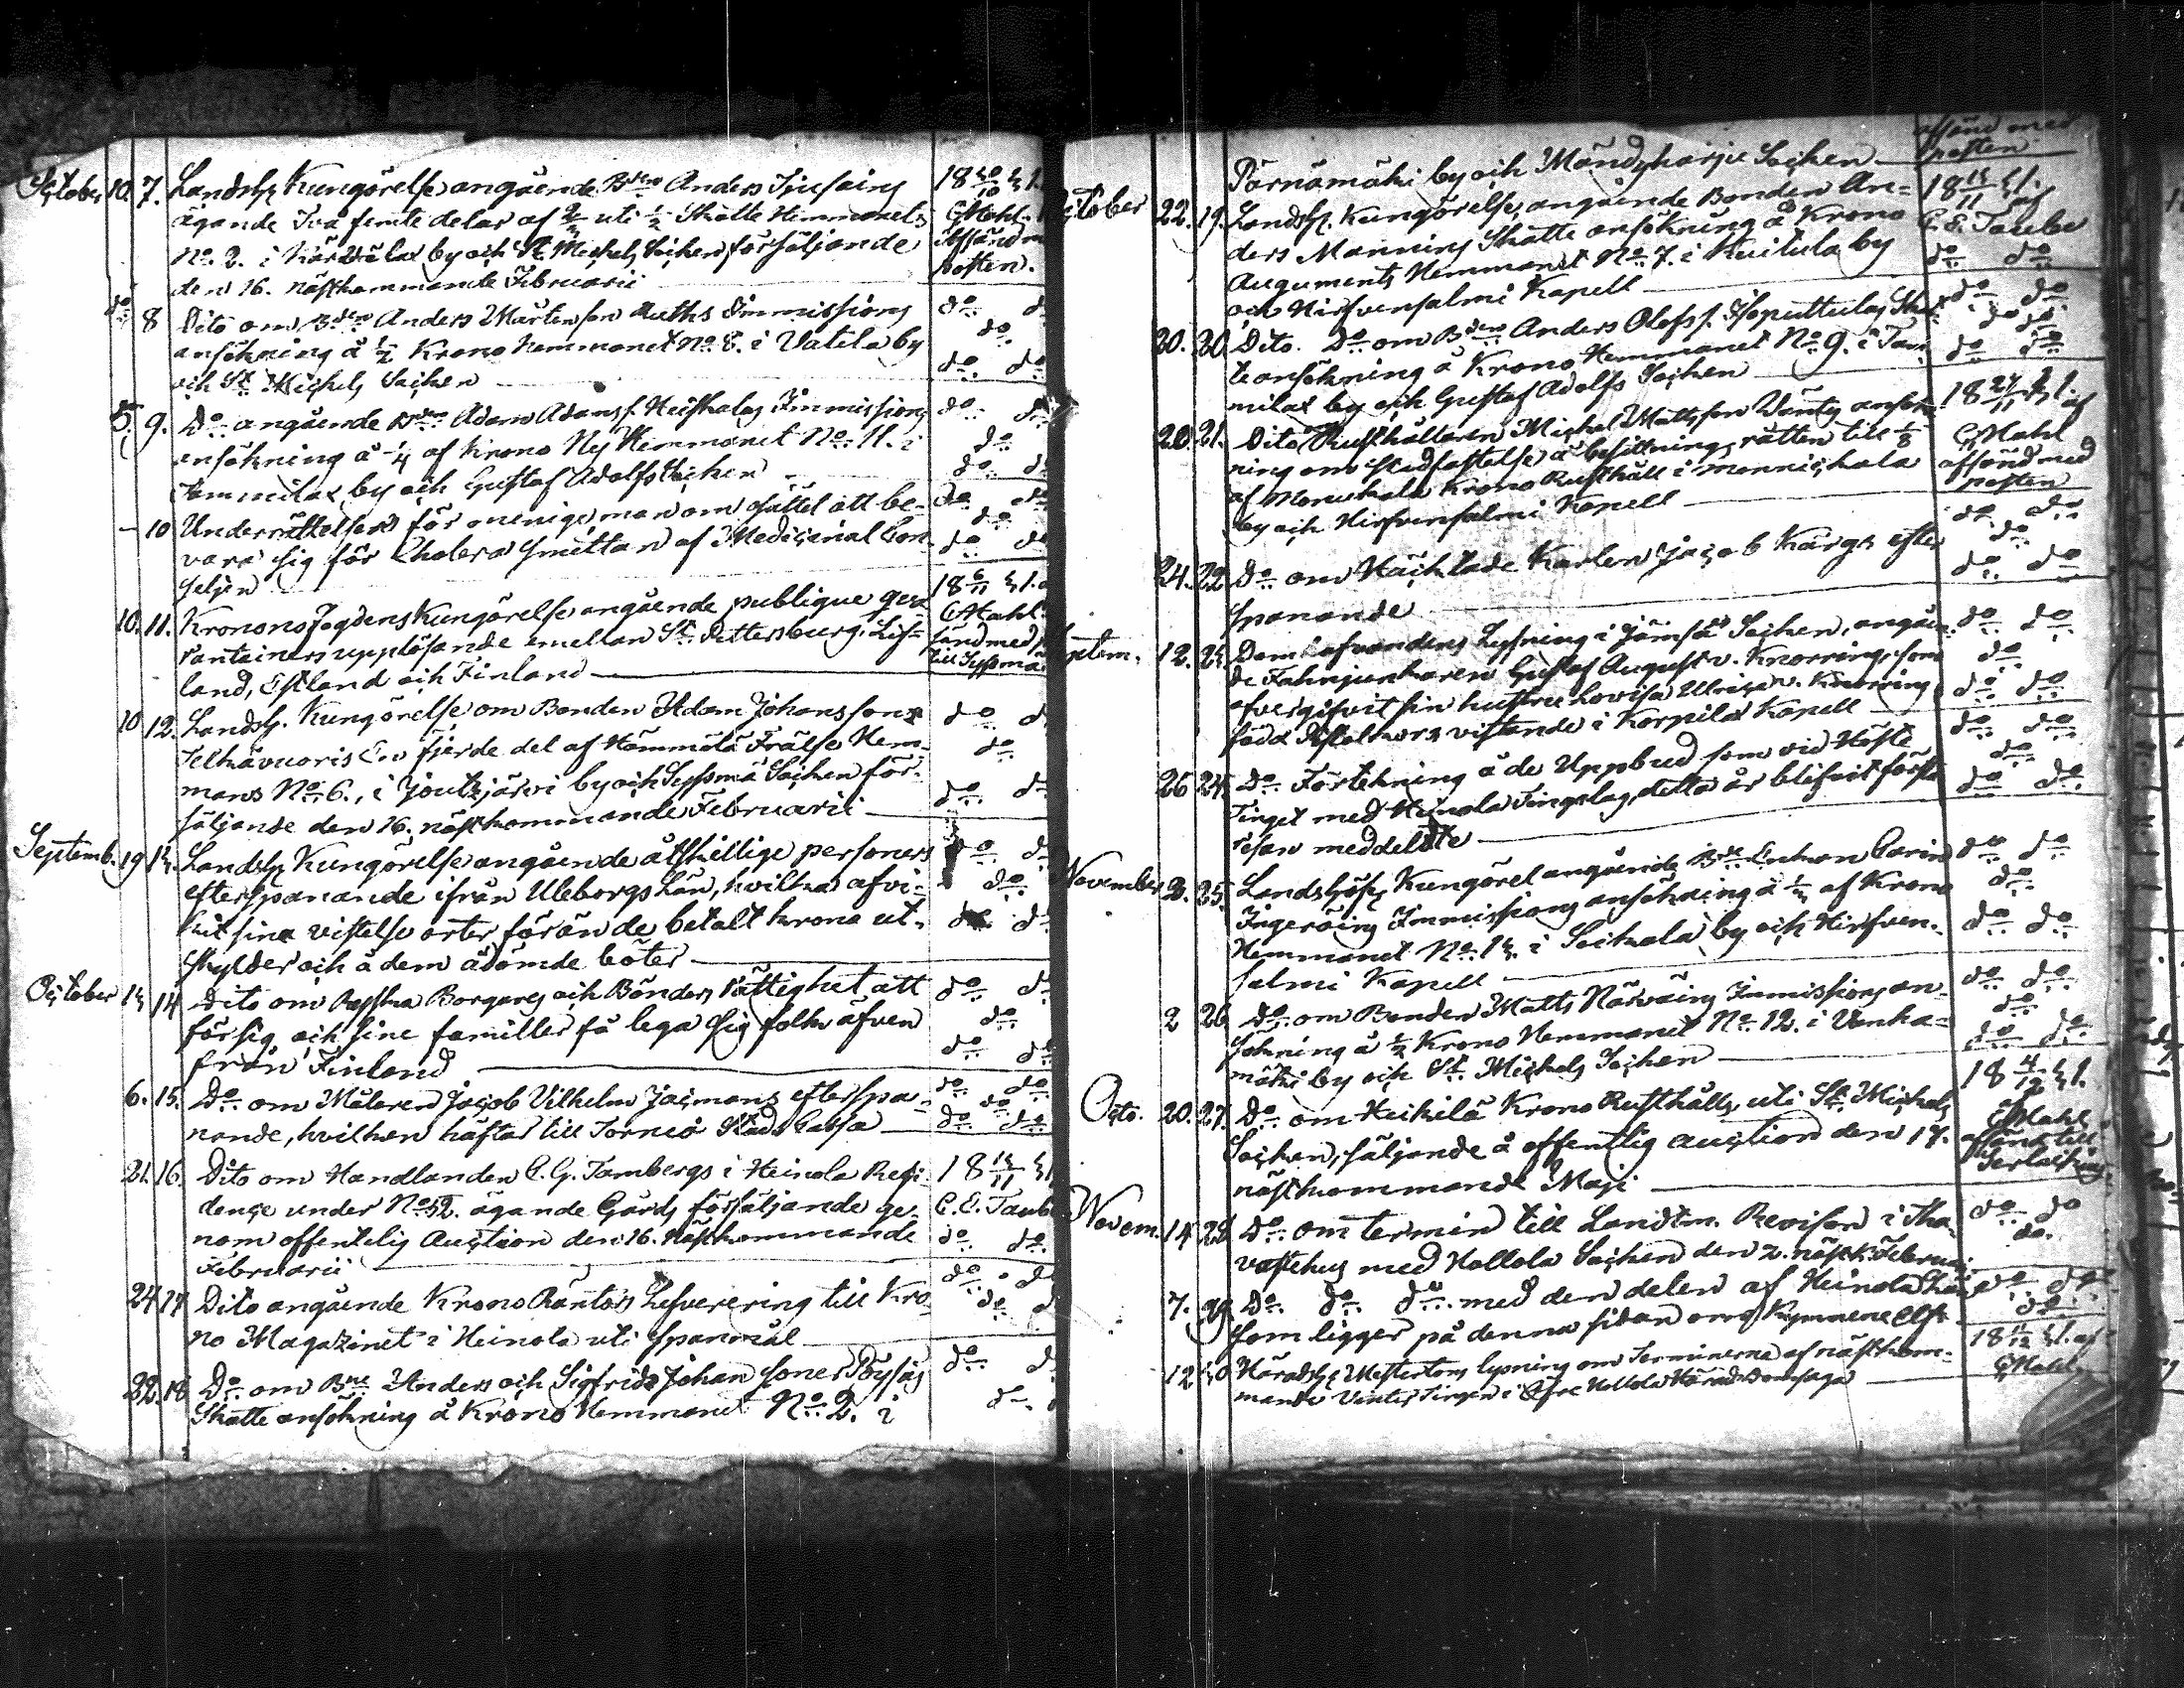 October 10. 7. Landshz Kungörelse angående Bden Anders Ijusains 18 30/10 31.
ägande Två femte delar af 2/2 uti 1/2 Skatte Hemmanets GMahl.
No. 2. i Kärdälax by och St. Michels Sochen försäljande Afsänd m
den 16. nästkommande Februarii posten.
do 8 Dito om Bden Anders Mårtensson Ruths Immissions do
ansökning å 1/2 Krono hemmanet No. 8. i Vatila by do
och St. Michels Sochen do do
9. Do angående Bden Adam Adamss. Heiskalas Immissions do
ansökning å 1/4 af Krono Ny Hemmanet No. 11. i do
Tammilax by och Gustaf Adolfs Sochen do
10 Underrättelsen för menige man om sättet att be- do do
vara sig för Cholera smittan af Medicinal Con- do
seljen
10. 11. Kronons Fogdens Kungörelse angående publique qva 18 6/11 31.
rantainers upplösande emellan St. Pettersburg, Lif- GMahl
land, Estland och Finland till Syssmä
10 12. Landsh. Kungörelse om Bonden Adam Johanssons do
Jelkävuoris En fjerde del af Hämmälä Frälse Hem- do
mans No. 6., i Joutsjärvi by och Syssmä Sochen för-
säljande den 16. nästkommande Februarii do
Septemb. 19 13. Landshz Kungörelse angående åtskillige personers do
efterspanande ifrån Uleborgs Län, hvilka afvi- do
kit sina vistelse orter förän de betalt krono ut- do
skylder och å dem ådömde böter
October 13 14 Dito om Ryska Borgares och Bönders rättighet att do
för sig och sine familler få lega sig folk äfven do
från Finland do
6. 15. Do om Målaren Jacob Vilhelm Jacmans efterspa- do do
nande, hvilken häftar till Torneå Stads Cassa do do
21. 16. Dito om Handlanden C. G. Tambergs i Heinola Resi- 18 13/11 31
dençe under No 52. ägande Gårds försäljande ge- C. E. Taube
nom offentelig Auction den 16. nästkommande do do
Februarii
24 17 Dito angående Krono Räntors Lefverering till Kro- do
no Magazinet i Heinola uti spanmål do
22. 18 Do om Bne Anders och Sigfrid Johan soner Pöysäs do
Skatte ansökning å Krono Hemmanet No. 2. i do
Pärnämäki by och Mändyharju Sochen afsänd med posten
October 22. 19. Landsh. Kungörelse angående Bonden An- 18 13/11 31. af
ders Mannins Skatte ansökning å Krono C. E. Taube
Auguments Hemmanet No. 7. i Kuitula by do do
och Hirfvensalmi Kapell
20. 20 Dito. Do om Bden Anders Olofss. Isoputtulas Skat- do do
te ansökning å Krono Hemmanet No. 9. i Tam- do
milax by och Gustaf Adolfs Sochen do do
20. 21. Dito Rusthållaren Michel Mattsson Väntys ansök- 18 27/11 31. af
ning om stadfästelse å besittnings rätten till 1/8 GMahl
af Krono Rusthåll i afsänd med
by och Hirfvensalmi Kapell posten
24. 22 Do om Häcktade Karlen Jacob Kargs efter do do
spanande do do
Septem. 12. 23. Domhafvandens Lysning i Jämsä Sochen, angåen- do do
de Fahnjunkaren Gustaf August v. Knorring, som do
öfvergifvit sin hustru Lovisa Ulrica v. Knorring do do
född vistande i Korpilax Kapell
26 24. Do Förtekning å de Uppbud som vid Höste do do
Tinget med Heinola Tingslag detta år blifvit första do
resan meddelte do do
November 3. 25. Landshöfs. Kungörel angående Bde Enkan Carin do do
Ingeröins Immissions ansökning å 1/2 af Krono do
Hemmanet No. 13. i Seikala by och Hirfven- do do
salmi Kapell
2 26 Do om Bonden Matts Närväins Immissions an- do do
sökning å 1/2 Krono Hemmanet No. 12. i Vanha- do
mäki by och St. Michels Sochen do do
Octo. 20. 27. Do om Heikilä Krono Rusthålls, uti St. Michels 18 4/12 31. af
Sochen, säljande å offentlig auction den 17. GMahl
nästkommande Maji afsänd till
Novem. 14 28 Do om termin till Landtm. Revison i Tha- do do
vastehus med Hollola Sochen den 2. näst k. Februari do
7. 29 Do do do med den delen af Heinola do do
som ligger på denna sidan om Kymmene elf do
12 30 Häradshz Mestertons lysning om Terminerna af nästkom- 18 11/12 31. af
mande Vinter Tingen i Öfre Hollola Härads Domsaga GMahl